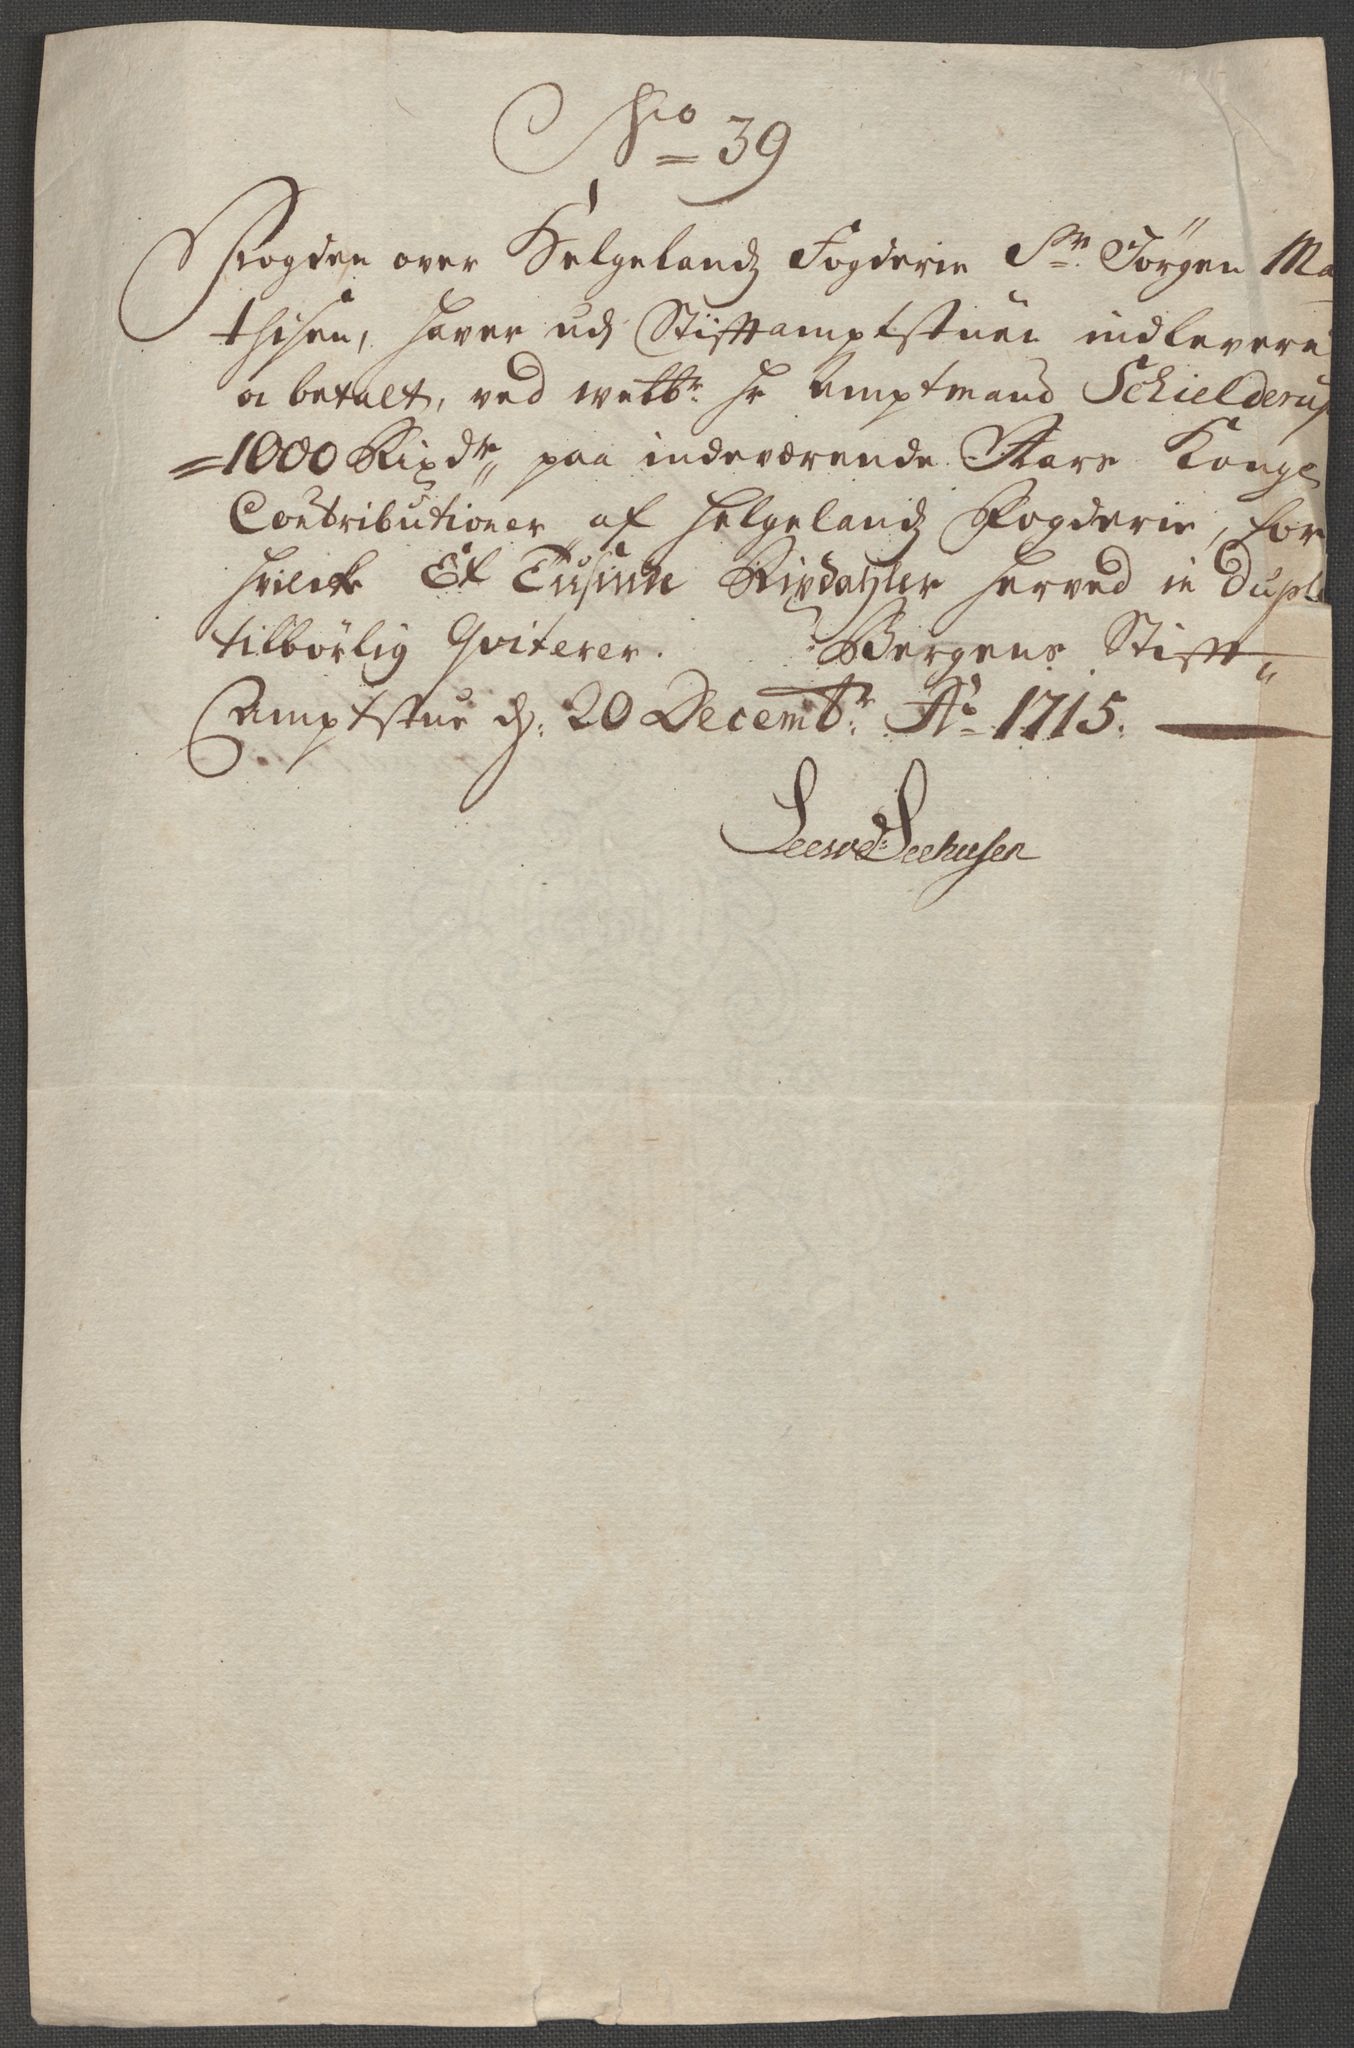 No 39
Fogden over Helgelandz Fogderie Sr. Jörgen Ma-
thisen, haver udj Stifftamptstuen indlevere
oc betalt, ved welbr. Hr Amptmand Schielderup
=1000 Rixdr. paa indeværende Aars Kongl
Contributioner af Helgelandz Fogderie, for
hvilcke Et Tusinde Rixdahler herved in Dupl
tilbørlig Qviterer. Bergens Stifft-
Amptstue d. 20 Decembr. Ao 1715.
Seehusen